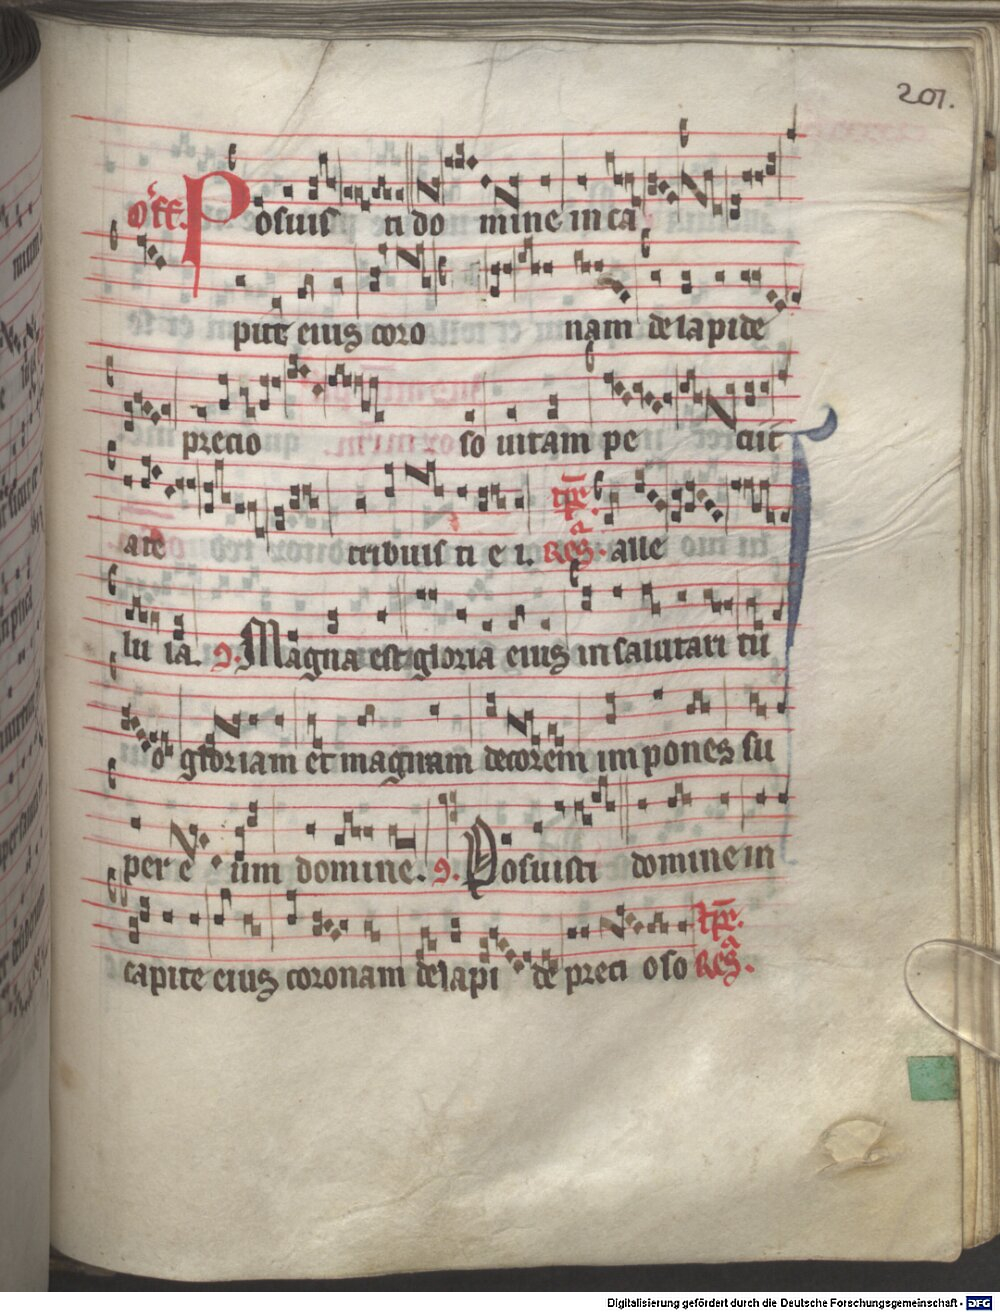 201.
Off. Posuis ti do mine in ca
put eius coro nam de lapide
precio so uitam pe ciit
a te tribuis ti e i. alle
lu ia. Magna est gloria eius in salutari tu
o gloriam et magnum decorem impones su
per e um domine. Posuisti domine in
capite eius coronam de lapi de preci oso
Digitalisierung gefördert durch die Deutsche Forschungsgemeinschaft - DFG